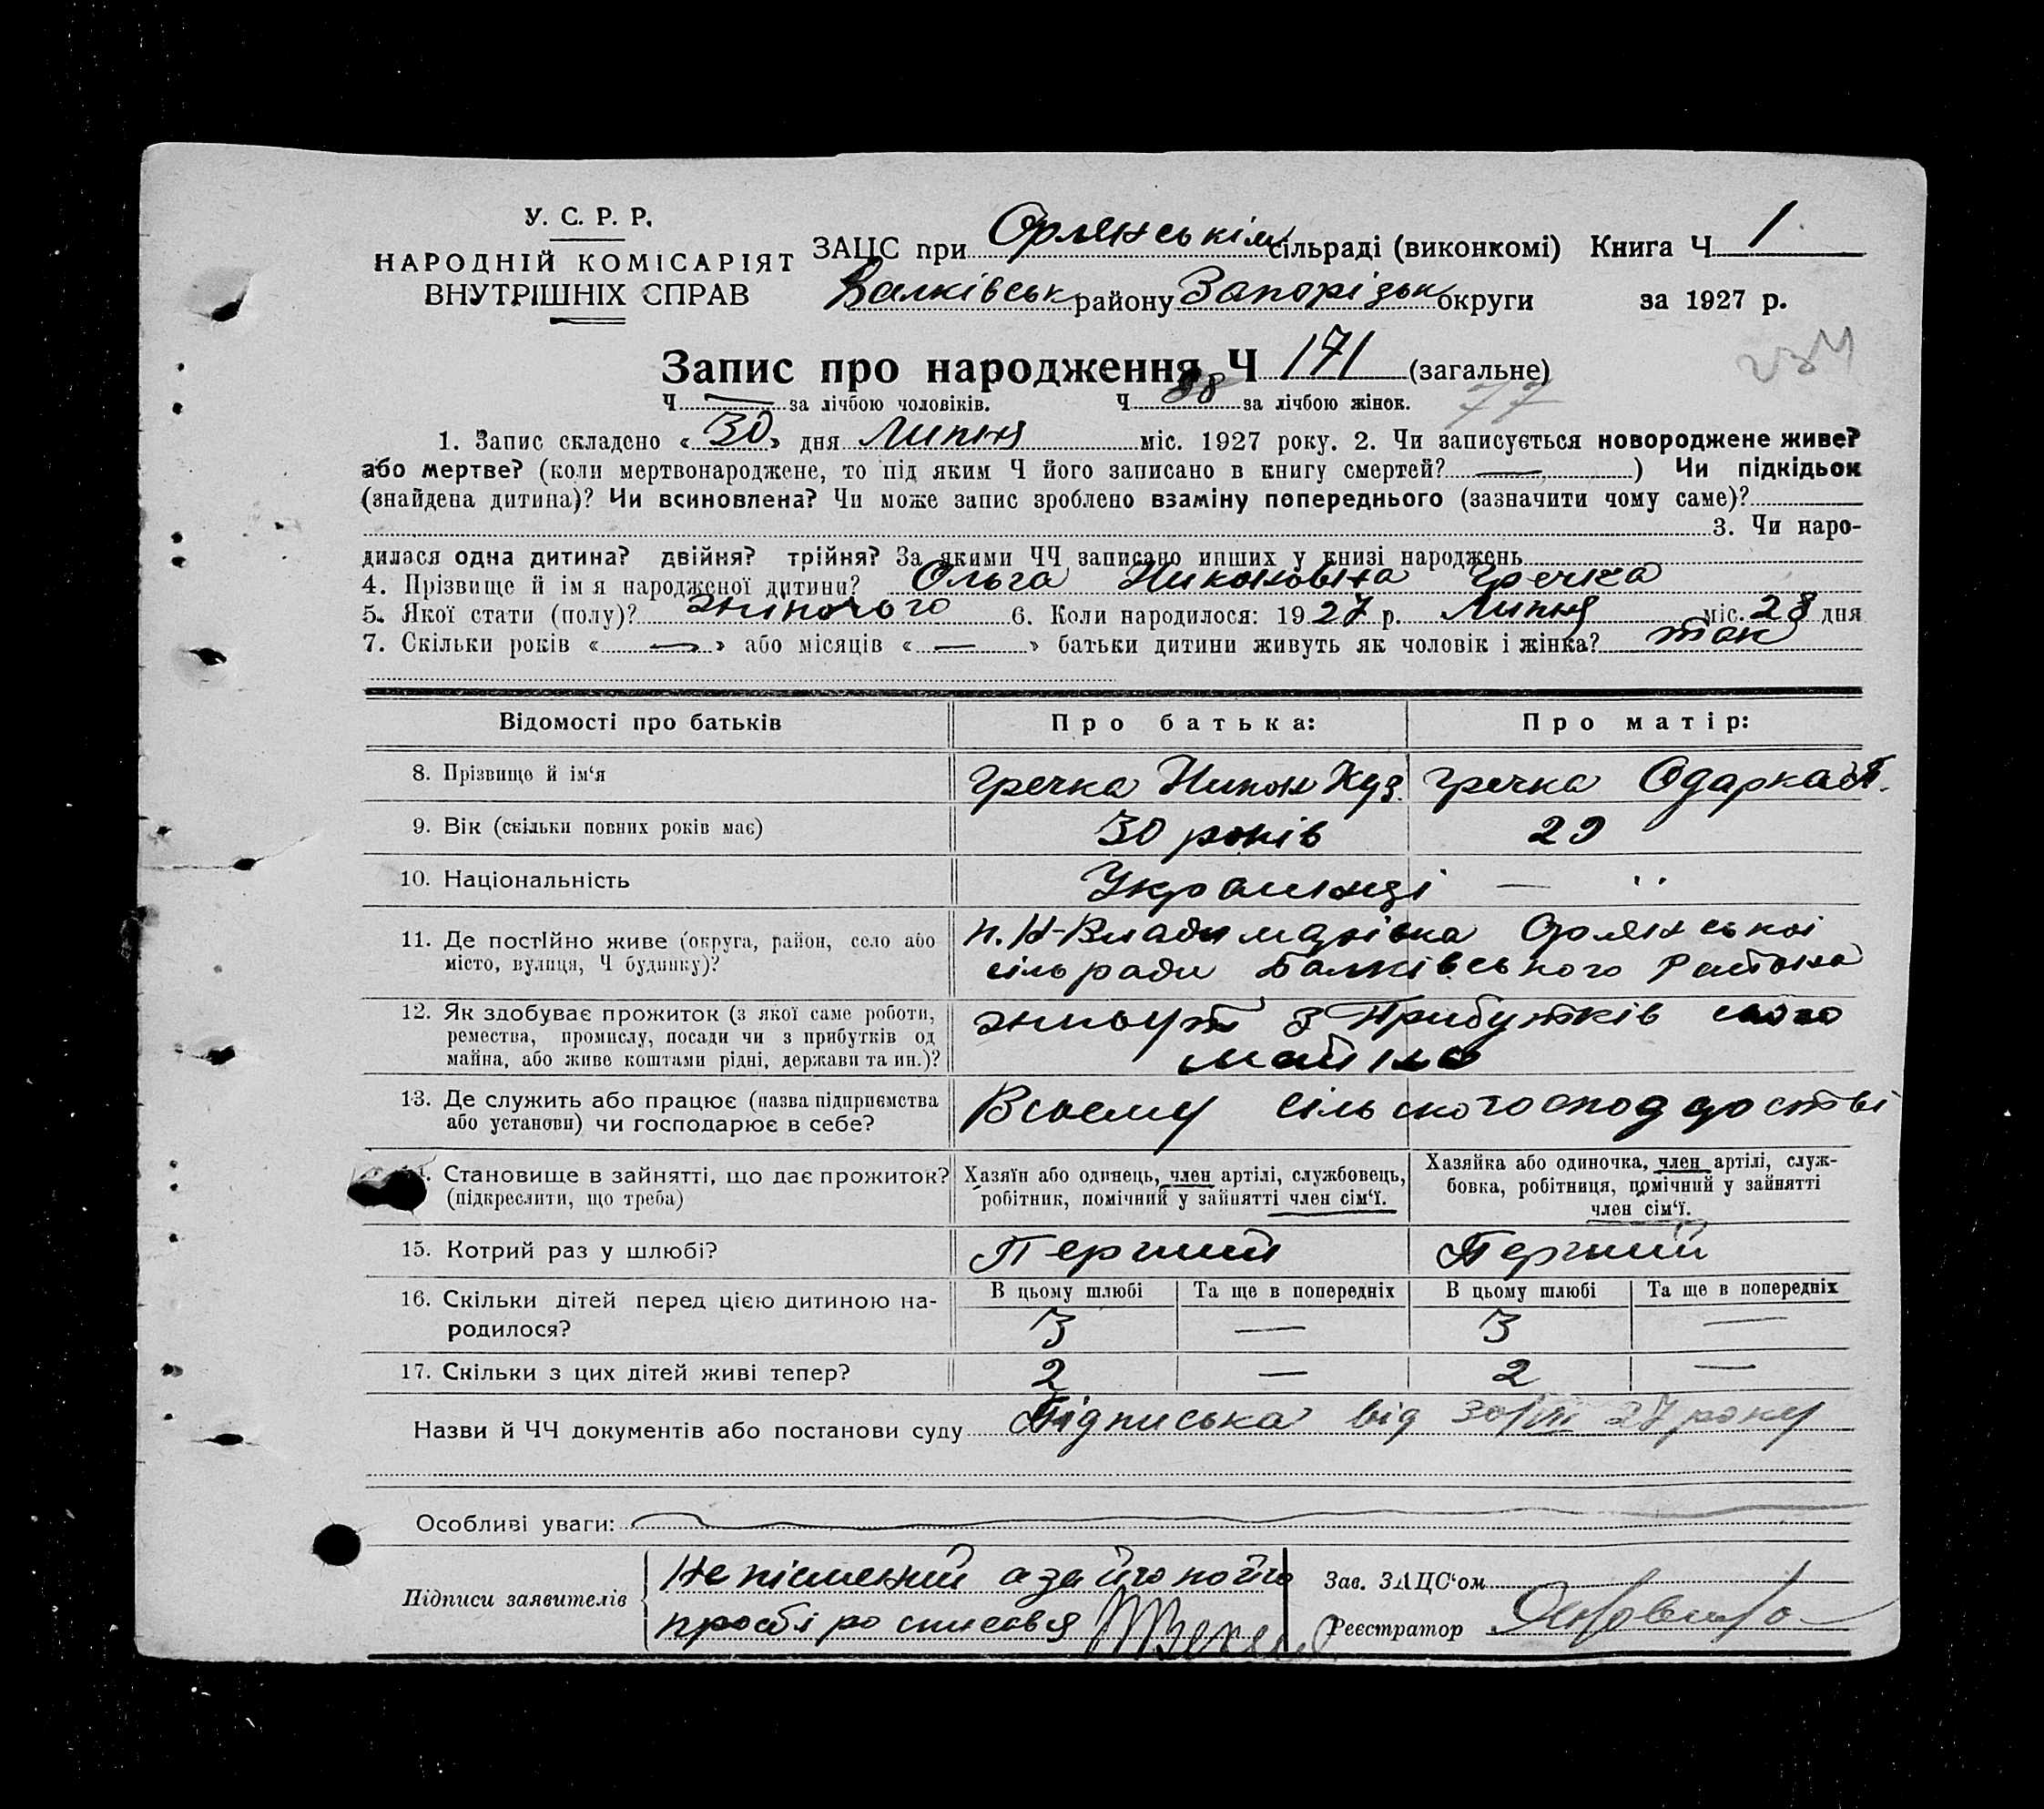 У. С. Р. Р.
НАРОДНІЙ КОМІСАРІЯТ
ВНУТРІШНІХ СПРАВ
ЗАЦС при Орлянськім сільраді (виконкомі) Книга Ч 1
Балківськ району Запорізьк округи за 1927 р.
234
Запис про народження Ч 171 (загальне)
Ч — за лічбою чоловіків. Ч 88 за лічбою жінок. 77
1. Запис складено «30» дня Липня міс. 1927 року. 2. Чи записується новороджене живе?
або мертве? (коли мертвонароджене, то під яким Ч його записано в книгу смертей? — ) Чи підкідьок
(знайдена дитина)? Чи всиновлена? Чи може запис зроблено взаміну попереднього (зазначити чому саме)?
3. Чи наро-
дилася одна дитина? двійня? трійня? За якими ЧЧ записано инших у книзі народжень
4. Прізвище й ім я народженої дитини? Ольга Никоновна Гречка
5. Якої стати (полу)? жіночого 6. Коли народилося: 1927 р. Липня міс. 28 дня
7. Скільки років « — » або місяців « — » батьки дитини живуть як чоловік і жінка? так
Відомості про батьків Про батька: Про матір:
8. Прізвище й ім‘я Гречка Никон Куз. Гречка Одарка
9. Вік (скільки повних років має) 30 років 29
10. Національність Українці — "
11. Де постійно живе (округа, район, село або п. Н-Владимирівка Орлянської
місто, вулиця, Ч будинку)? сільради Балківського Району
12. Як здобуває прожиток (з якої саме роботи, живуть з Прибутків свого
ремества, промислу, посади чи з прибутків од
майна, або живе коштами рідні, держави та ин.)? майна
13. Де служить або працює (назва підприємства Всвоему сільському господарстві
або установи) чи господарює в себе?
14. Становище в зайнятті, що дає прожиток? Хазяїн або одинець, член артілі, службовець, Хазяйка або одиночка, член артілі, служ-
(підкреслити, що треба) робітник, помічний у зайнятті член сім‘ї. бовка, робітниця, помічний у зайнятті
член сім‘ї.
15. Котрий раз у шлюбі? Перший Перший
16. Скільки дітей перед цією дитиною на- В цьому шлюбі Та ще в попередніх В цьому шлюбі Та ще в попередніх
родилося? 3 — 3 —
17. Скільки з цих дітей живі тепер? 2 — 2 —
Назви й ЧЧ документів або постанови суду Підписька від 30/VII 27 року
Особливі уваги:
Підписи заявителів Непісменний а за його по його Зав. ЗАЦС‘ом
прозбі росписався Реєстратор